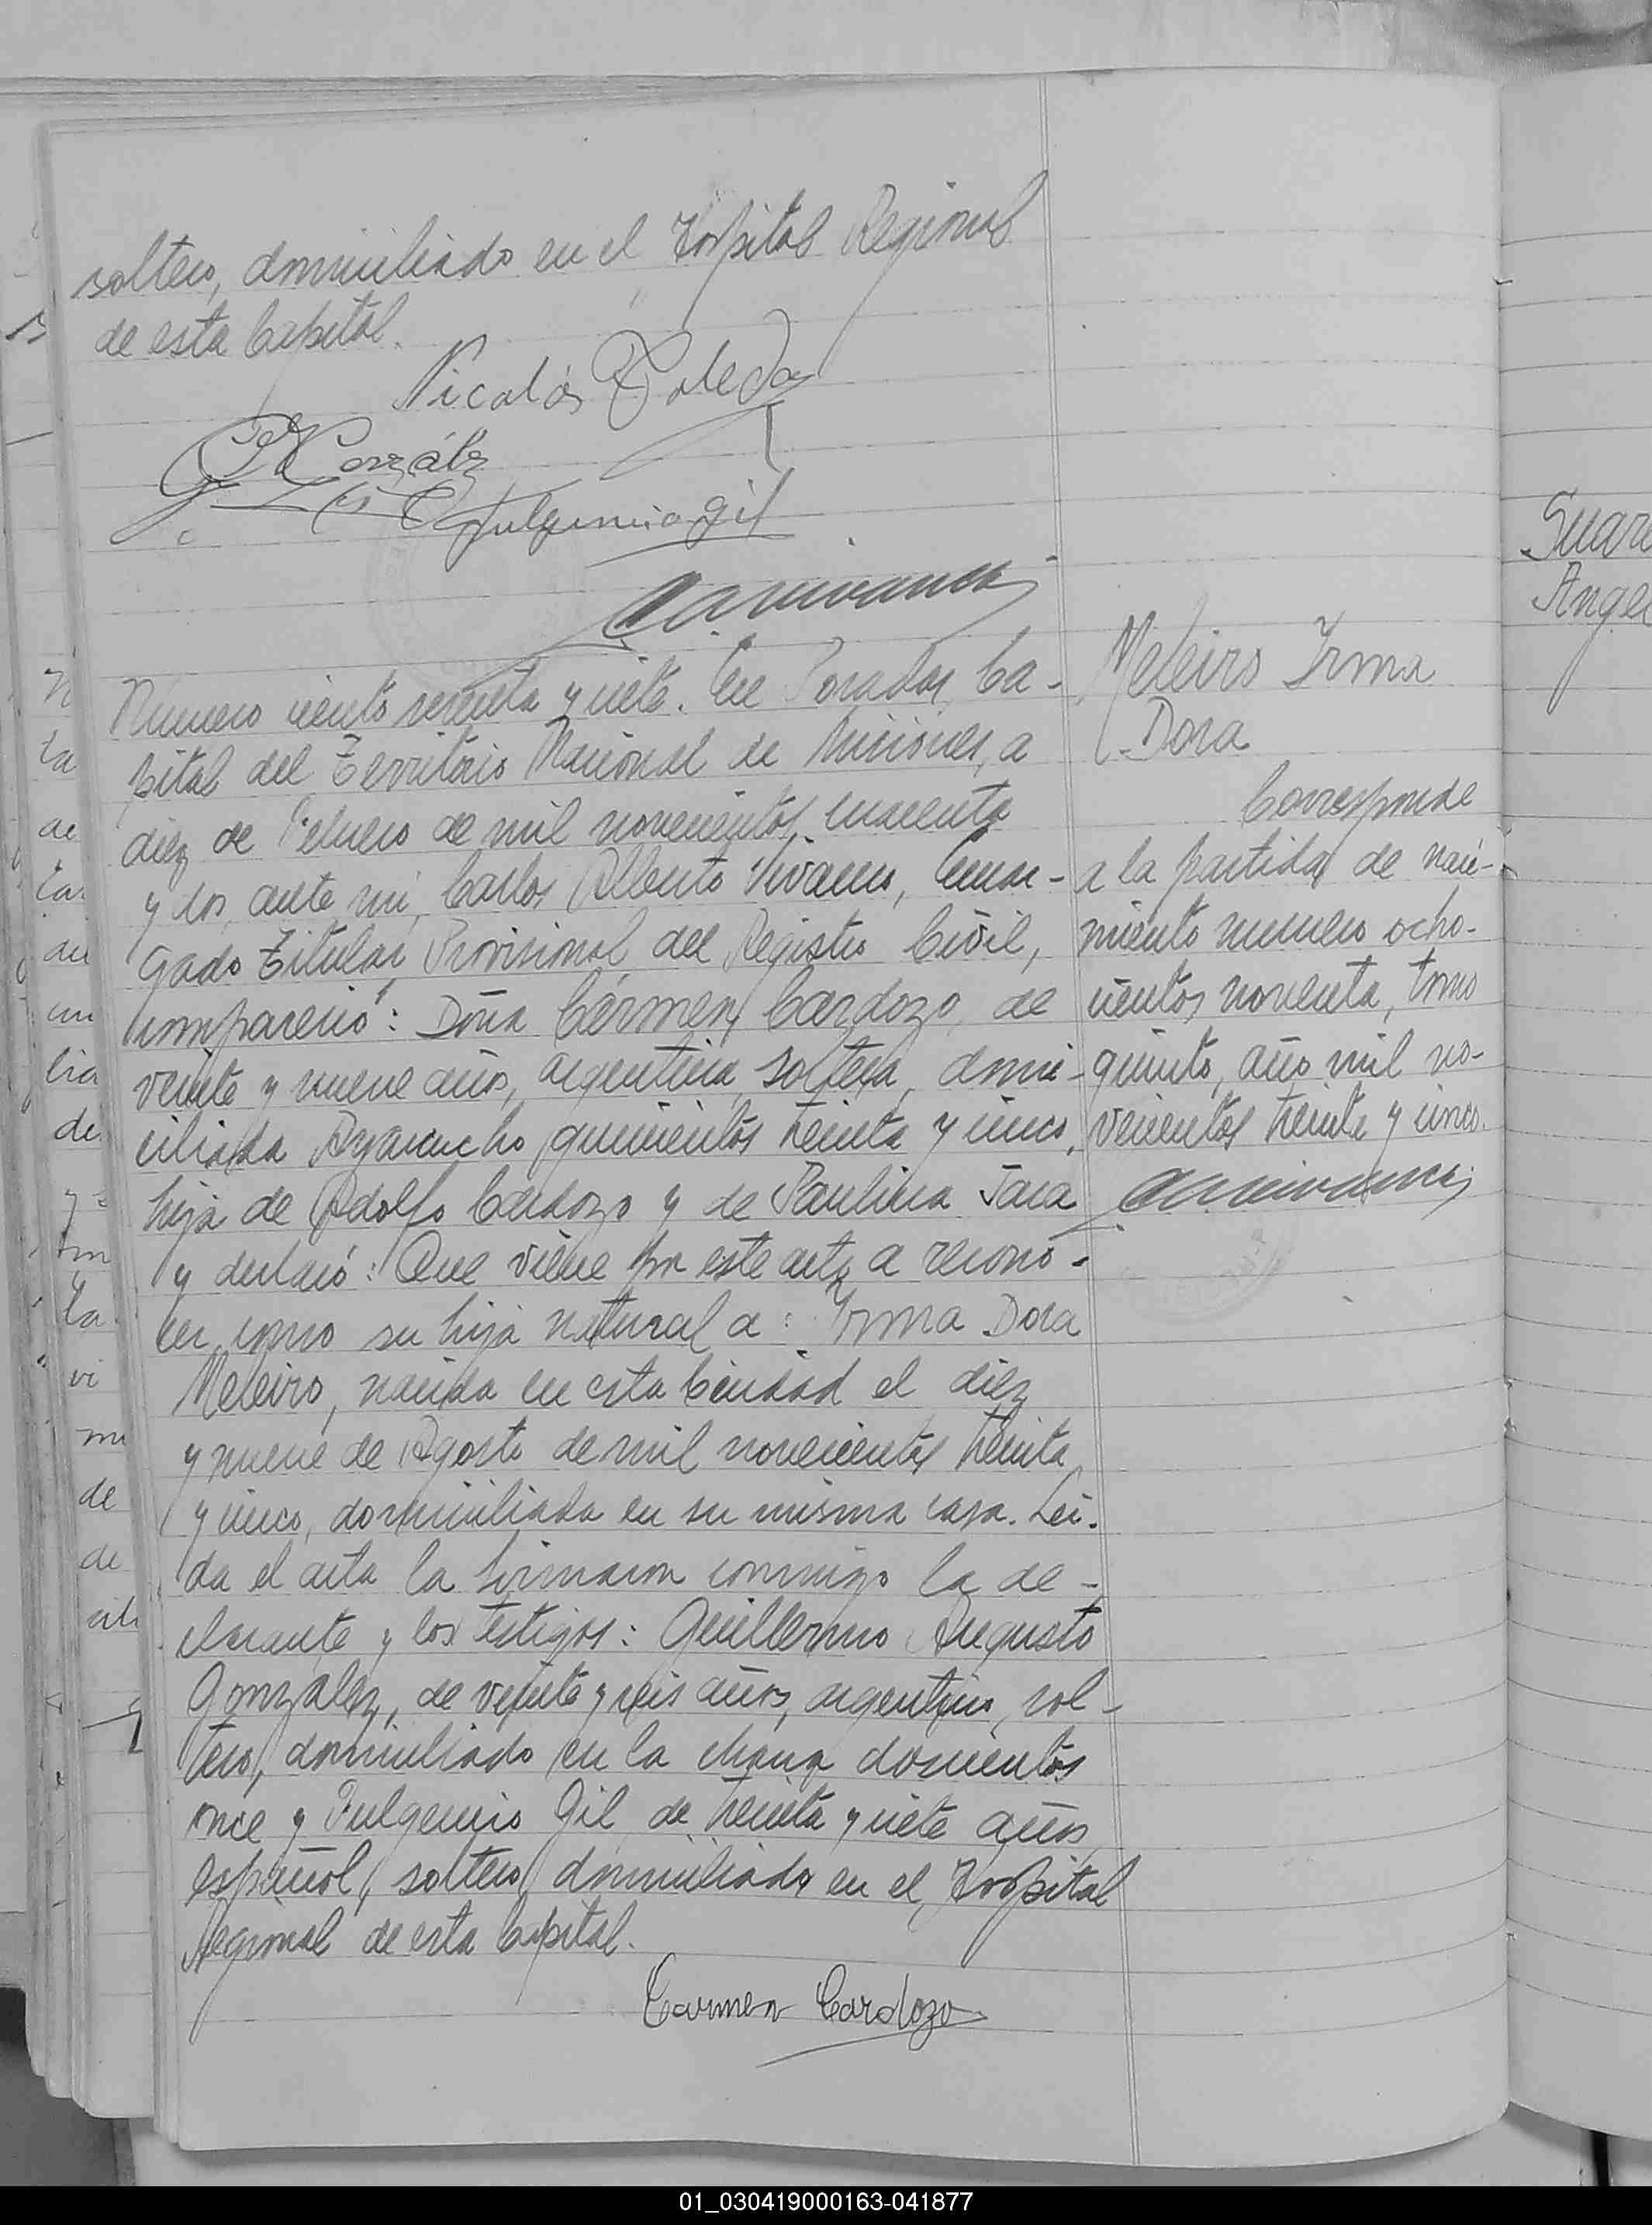 soltero, domiciliado en el Hospital Regional
de esta Capital.
Nicolás Toledo
González
Fulgencio Gil
Número ciento sesenta y siete. En Posadas, Ca-
pital del Territorio Nacional de Misiones, a
diez de Febrero de mil novecientos cuarenta
y dos, ante mi, Carlos Alberto Vivanco, Encar-
gado Titular Provisional del Registro Civil,
compareció: Doña Cármen Cardozo, de
veinte y nueve años, argentina, soltera, domi-
ciliada Ayacucho quinientos treinta y cinco,
hija de Adolfo Cardozo y de Paulina Jara
y declaró: Que viene por este acto a recono-
cer como su hija natural a: Irma Dora
Meleiro, nacida en esta Ciudad el diez
y nueve de Agosto de mil novecientos treinta
y cinco, domiciliada en su misma casa. Lei-
da el acta la firmaron conmigo la de-
clarante y los testigos: Guillermo Augusto
González, de veinte y seis años, argentino, sol-
tero, domiciliado en la chacra doscientos
once y Fulgencio Gil de treinta y siete años
español, soltero, domiciliado en el Hospital
Regional de esta Capital.
Carmen Cardozo
Meleiro Irma
Dora
Corresponde
a la partida de naci-
miento numero ocho-
cientos noventa, tomo
quinto, año mil no-
vecientos treinta y cinco.
Suare
Angel
01_030419000163-041877